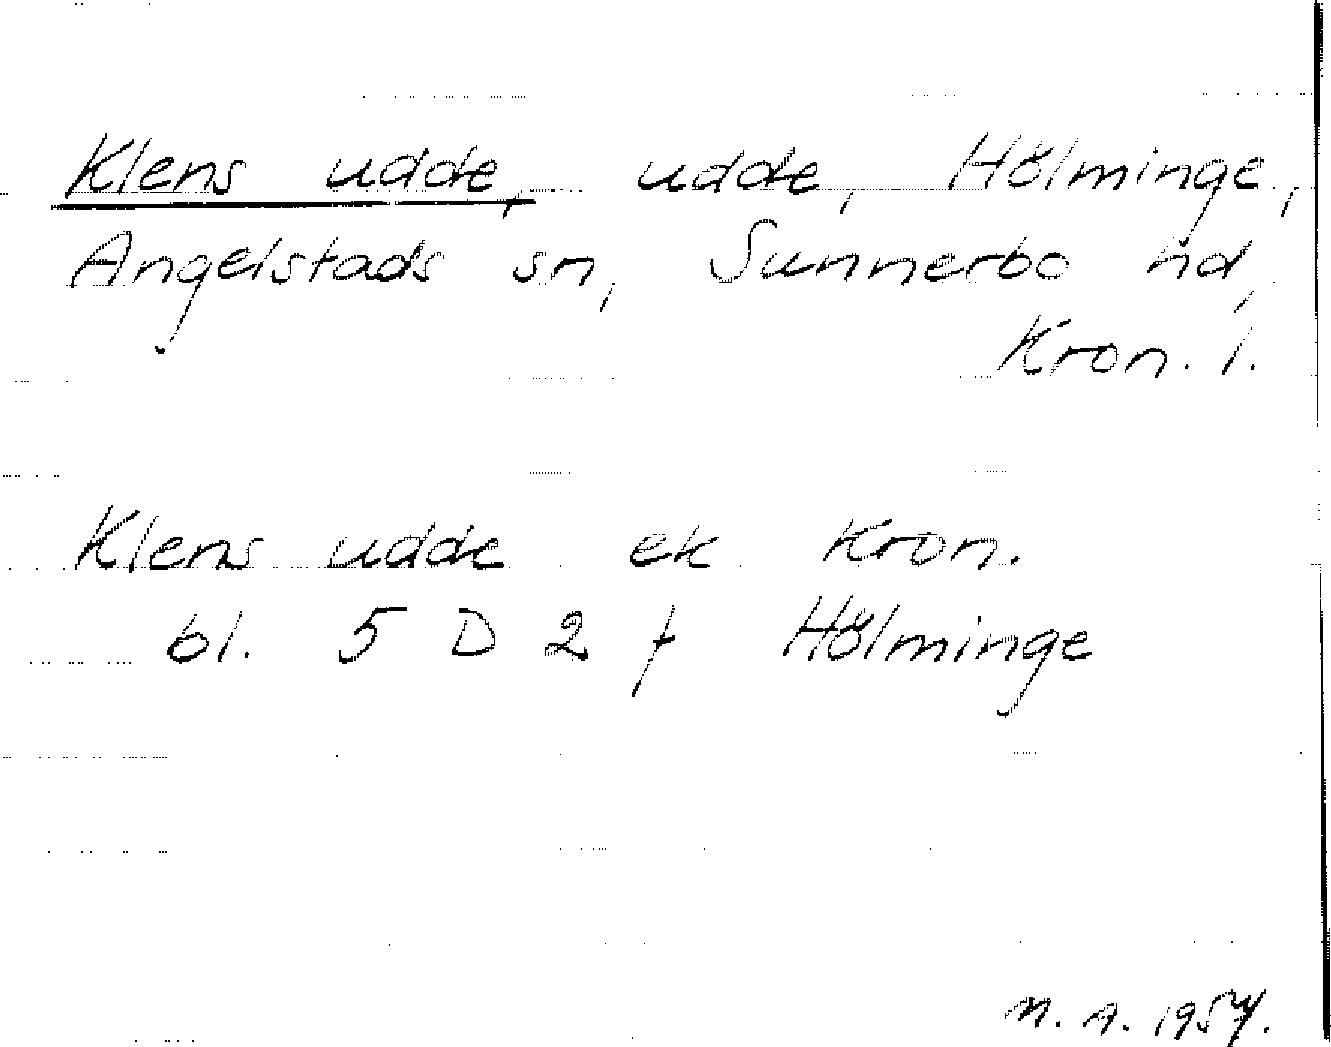 Klens udde, udde, Hölminge,
Angelstads sn, Sunnerbo hd,
Kron. l.
Klens udde ek Kron.
bl. 5 D 2 f Hölminge
M. A. 1957.